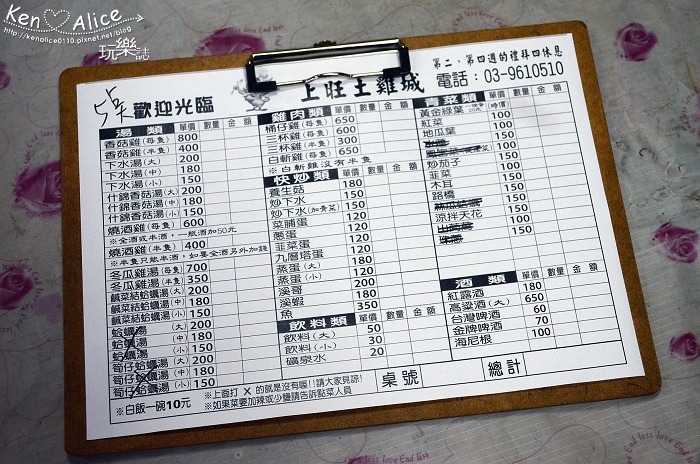 Ken♡Alice
http://kenalice0110.pixnet.net/blog
玩樂誌
歡迎光臨
上旺土雞城
第二、第四週的禮拜四休息
電話：03-9610510
湯類 單價 數量 金額
香菇雞(每隻) 800
香菇雞(半隻) 400
下水湯(大) 200
下水湯(中) 180
下水湯(小) 150
什錦香菇湯(大) 200
什錦香菇湯(中) 180
什錦香菇湯(小) 150
燒酒雞(每隻) 600
※全酒或半酒，一瓶酒加50元
燒酒雞(半隻) 400
※半隻只能半酒，如要全酒另外加錢
冬瓜雞湯(每隻) 700
冬瓜雞湯(半隻) 350
鹹菜結蛤蠣湯(大) 200
鹹菜結蛤蠣湯(中) 180
鹹菜結蛤蠣湯(小) 150
蛤蠣湯(大) 200
蛤蠣湯(中) 180
蛤蠣湯(小) 150
筍仔蛤蠣湯(大) 200
筍仔蛤蠣湯(中) 180
筍仔蛤蠣湯(小) 150
※白飯一碗10元
雞肉類 單價 數量 金額
桶仔雞(每隻) 650
三杯雞(每隻) 600
三杯雞(半隻) 300
白斬雞(每隻) 650
※白斬雞沒有半隻
快炒類 單價 數量 金額
養生菇 180
炒下水 150
炒下水(加青菜) 150
菜脯蛋 120
蔥蛋 120
韭菜蛋 120
九層塔蛋 120
蒸蛋(大) 180
蒸蛋(小) 120
溪哥 180
溪蝦 180
魚 350
飲料類 單價 數量 金額
飲料(大) 50
飲料(小) 30
礦泉水 20
※上面打 X 的就是沒有喔!!請大家見諒!
※如果菜要加辣或少鹽請告訴點菜人員
青菜類 單價 數量 金額
黃金綠葉(時價)
紅菜 100
地瓜葉 100
150
100
炒茄子 100
韭菜 100
木耳 150
路橋 150
涼拌天花 100
150
酒類 單價 數量 金額
紅露酒 180
高粱酒(大) 650
台灣啤酒 60
金牌啤酒 70
海尼根 100
桌號
總計